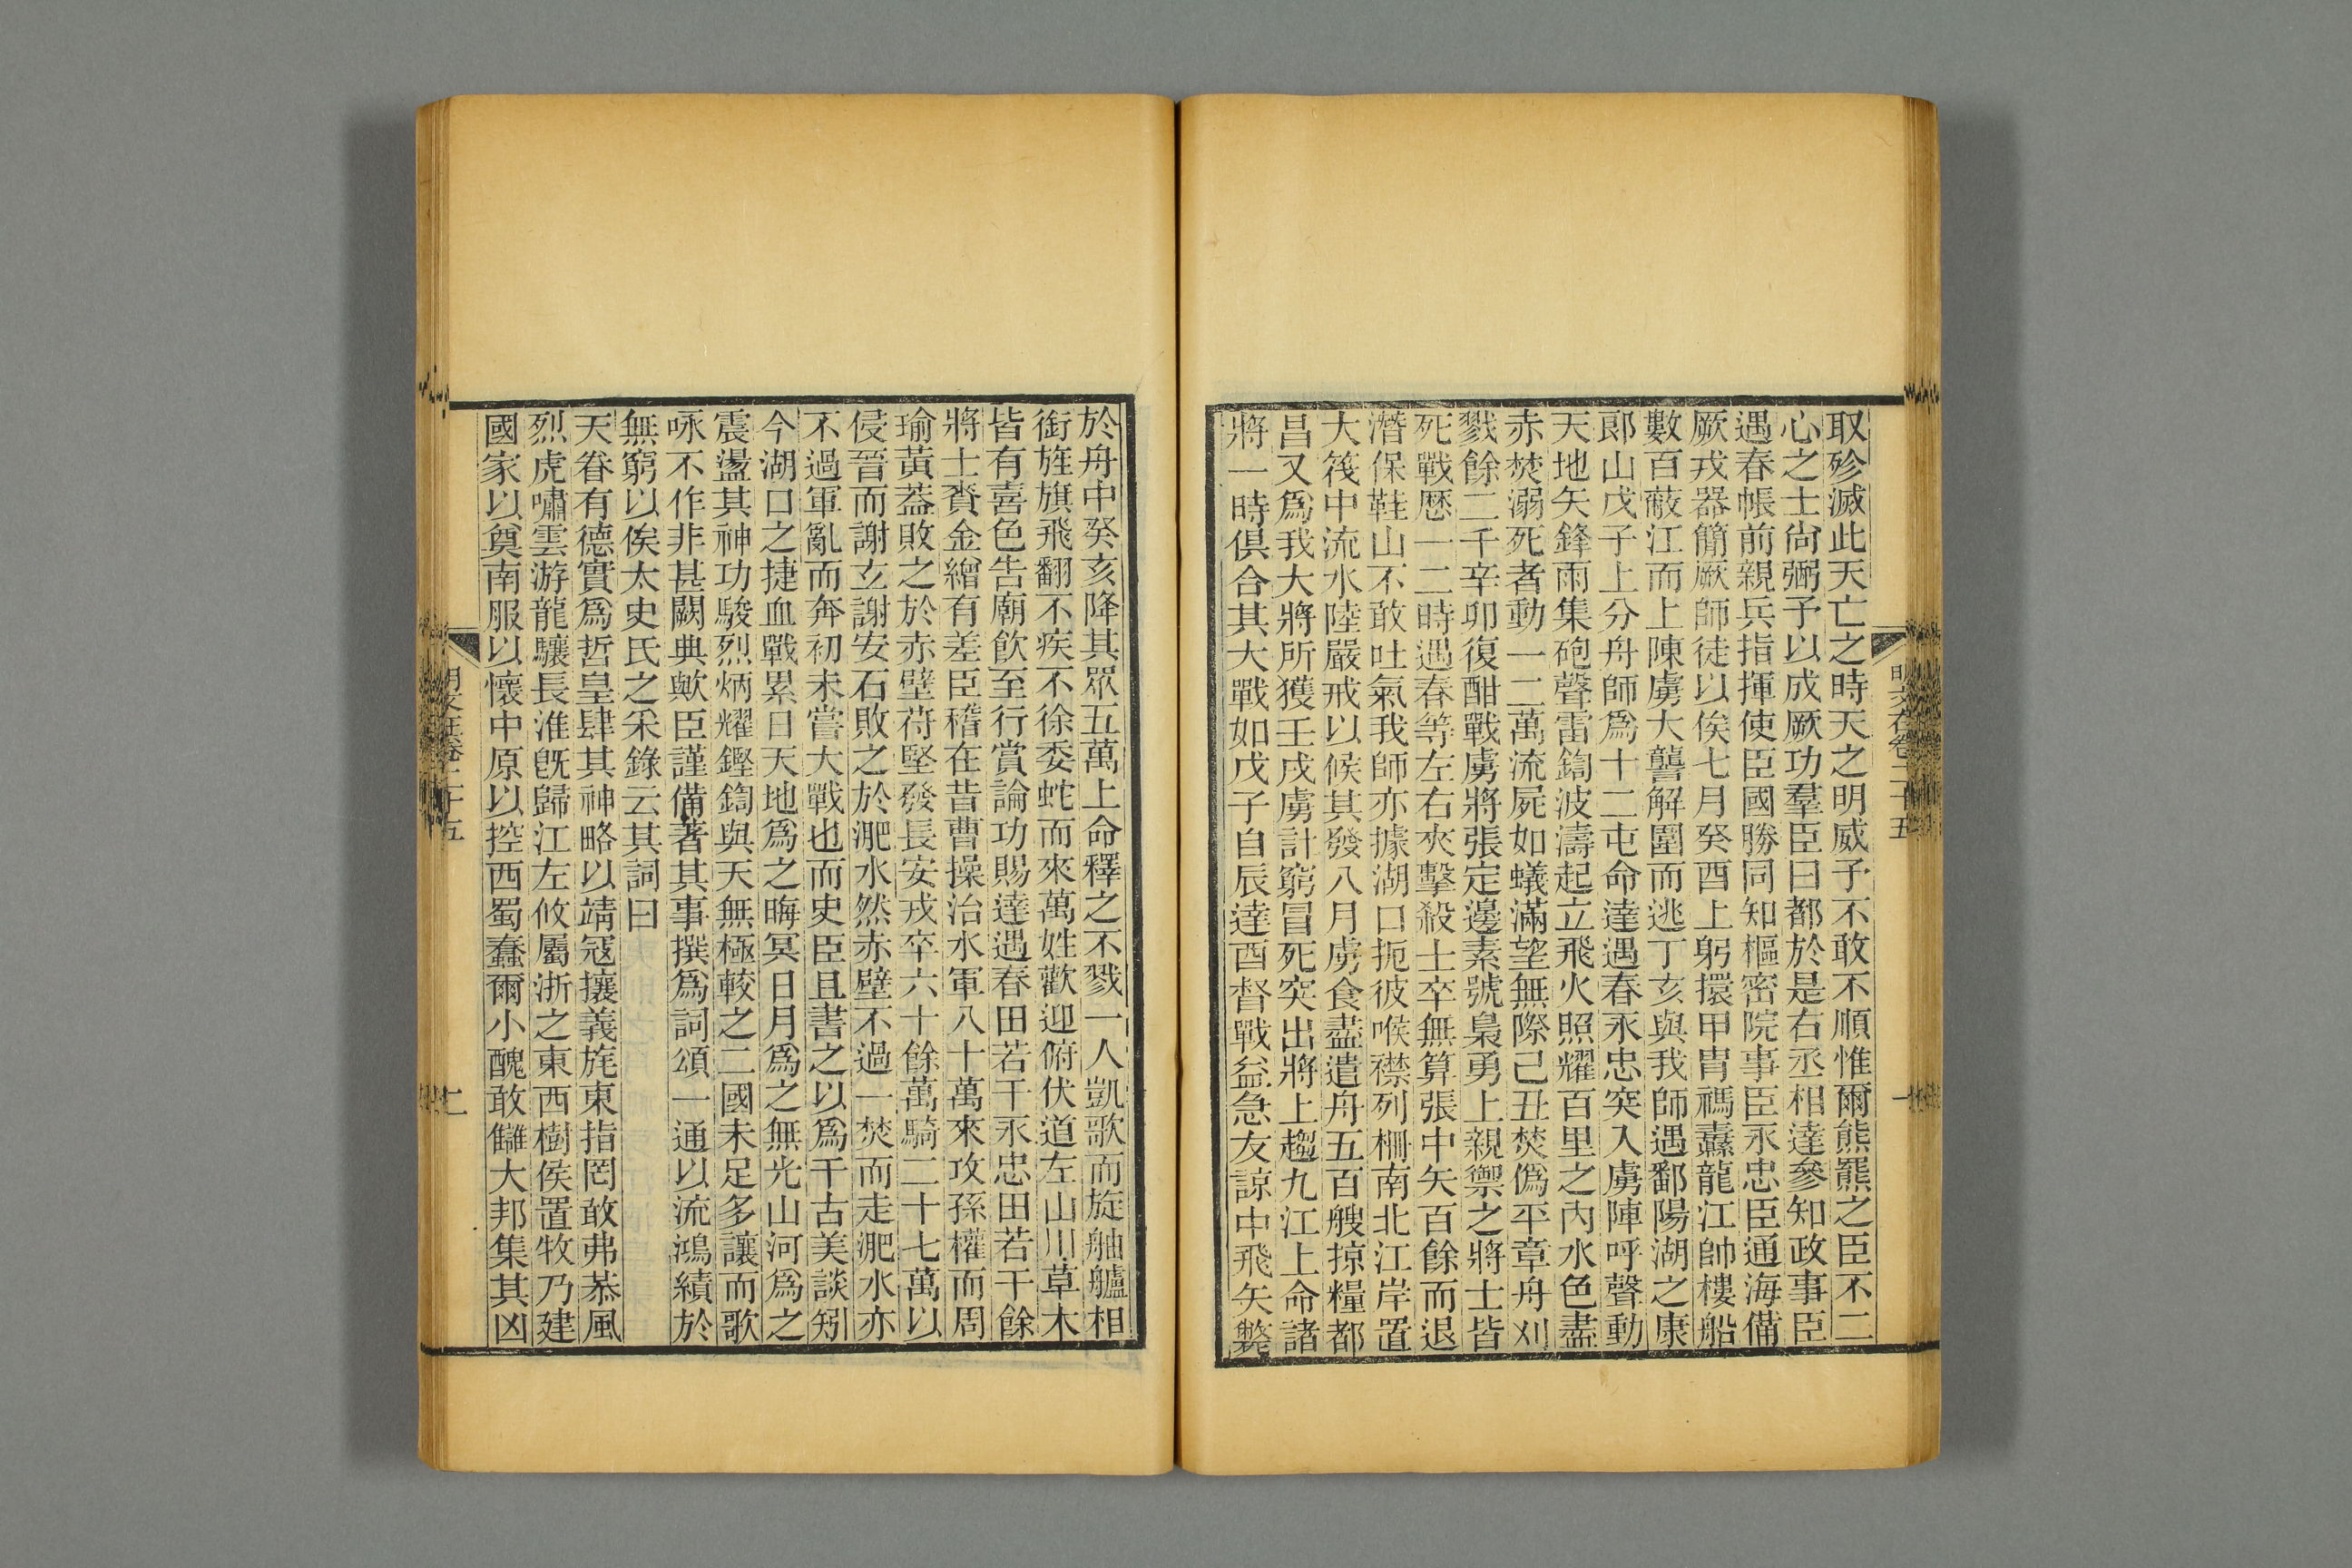 取殄滅此天亡之時天之明威予不敢不順惟爾熊羆之臣不二
心之士尙弼予以成厥功羣臣曰都於是右丞相達參知政事臣
遇春帳前親兵指揮使臣國勝同知樞密院事臣永忠臣通海備
厥戎器簡厥師徒以俟七月癸酉上躬擐甲胄禡纛龍江帥樓船
數百蔽江而上陳虜大讋解圍而逃丁亥與我師遇鄱陽湖之康
郎山戊子上分舟師爲十二屯命達遇春永忠突入虜陣呼聲動
天地矢鋒雨集砲聲雷鍧波濤起立飛火照耀百里之內水色盡
赤焚溺死者動一二萬流屍如蟻滿望無際己丑焚僞平章舟刈
戮餘二千辛卯復酣戰虜將張定邊素號梟勇上親禦之將士皆
死戰歷一二時遇春等左右夾擊殺士卒無算張中矢百餘而退
潛保鞋山不敢吐氣我師亦據湖口扼彼喉襟列柵南北江岸置
大筏中流水陸嚴戒以候其發八月虜食盡遣舟五百艘掠糧都
昌又爲我大將所獲壬戌虜計窮冒死突出將上趨九江上命諸
將一時俱合其大戰如戊子自辰達酉督戰益急友諒中飛矢斃
明文在卷二十五
於舟中癸亥降其眾五萬上命釋之不戮一人凱歌而旋舳艫相
銜旌旗飛翻不疾不徐委蛇而來萬姓歡迎俯伏道左山川草木
皆有喜色告廟飲至行賞論功賜達遇春田若干永忠田若干餘
將士賚金繒有差臣稽在昔曹操治水軍八十萬來攻孫權而周
瑜黃蓋敗之於赤壁苻堅發長安戎卒六十餘萬騎二十七萬以
侵晉而謝玄謝安石敗之於淝水然赤壁不過一焚而走淝水亦
不過軍亂而奔初未嘗大戰也而史臣且書之以爲千古美談矧
今湖口之捷血戰累日天地爲之晦冥日月爲之無光山河爲之
震盪其神功駿烈炳耀鏗鍧與天無極較之二國未足多讓而歌
咏不作非甚闕典歟臣謹備著其事撰爲詞頌一通以流鴻績於
無窮以俟太史氏之采錄云其詞曰
天眷有德實爲哲皇肆其神略以靖寇攘義旄東指罔敢弗恭風
烈虎嘯雲游龍驤長淮旣歸江左攸屬浙之東西樹侯置牧乃建
國家以奠南服以懷中原以控西蜀蠢爾小醜敢讎大邦集其凶
明文在卷二十五
七